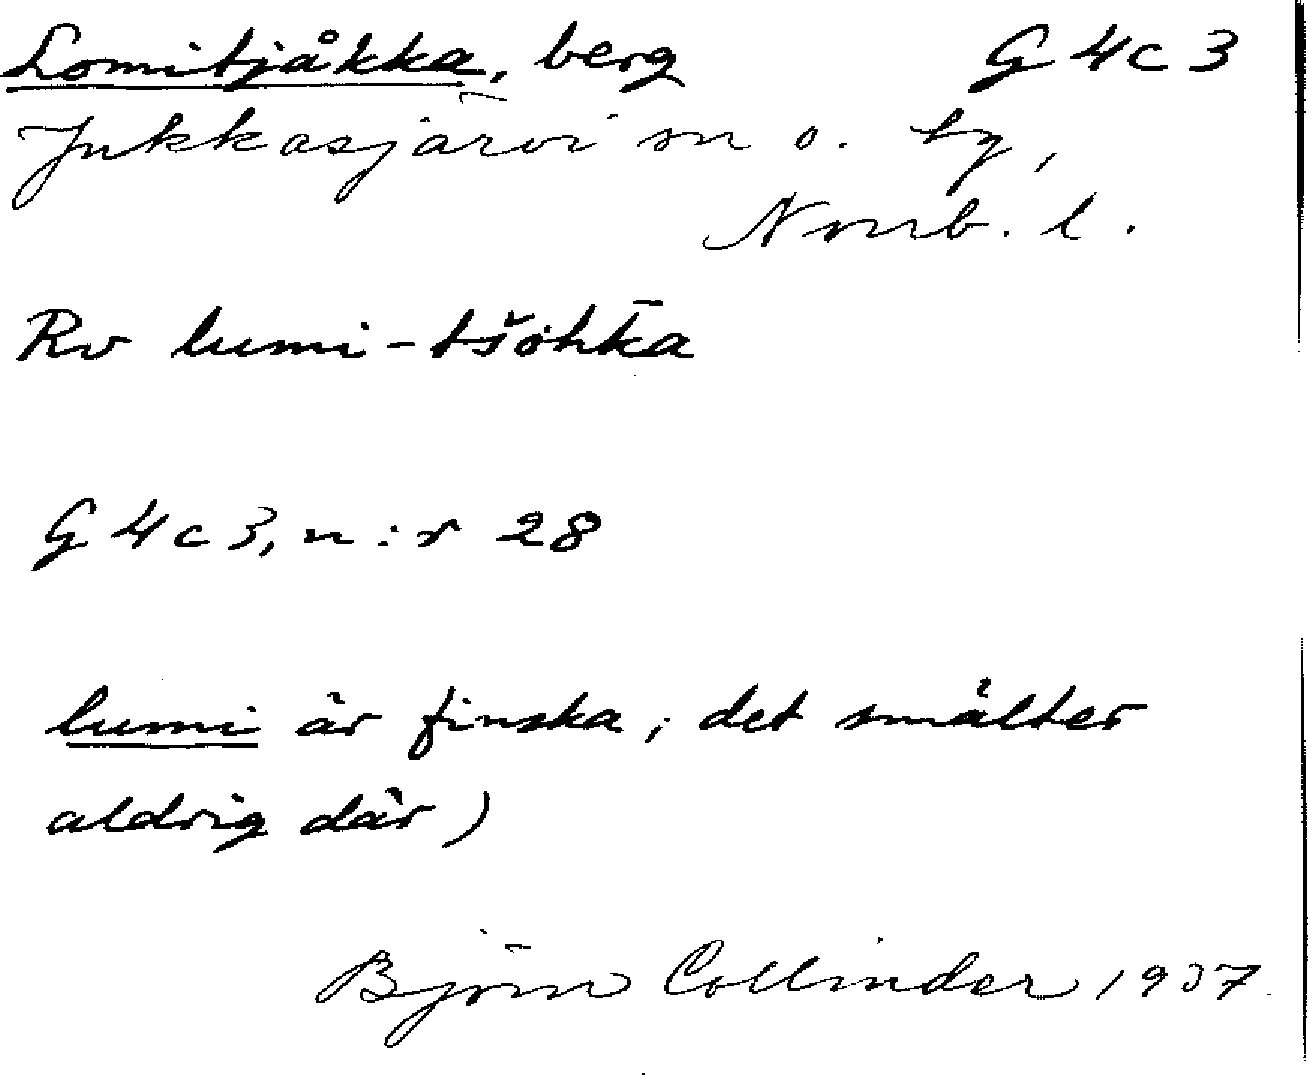 Lomitjåkka, berg G4c3
Jukkasjärvi sn o. tg,
Norrb. l.
Rv lumi-tšohka
G4c3, n:r 28
lumi är finska, det smälter
aldrig där)
Björn Collinder 1937